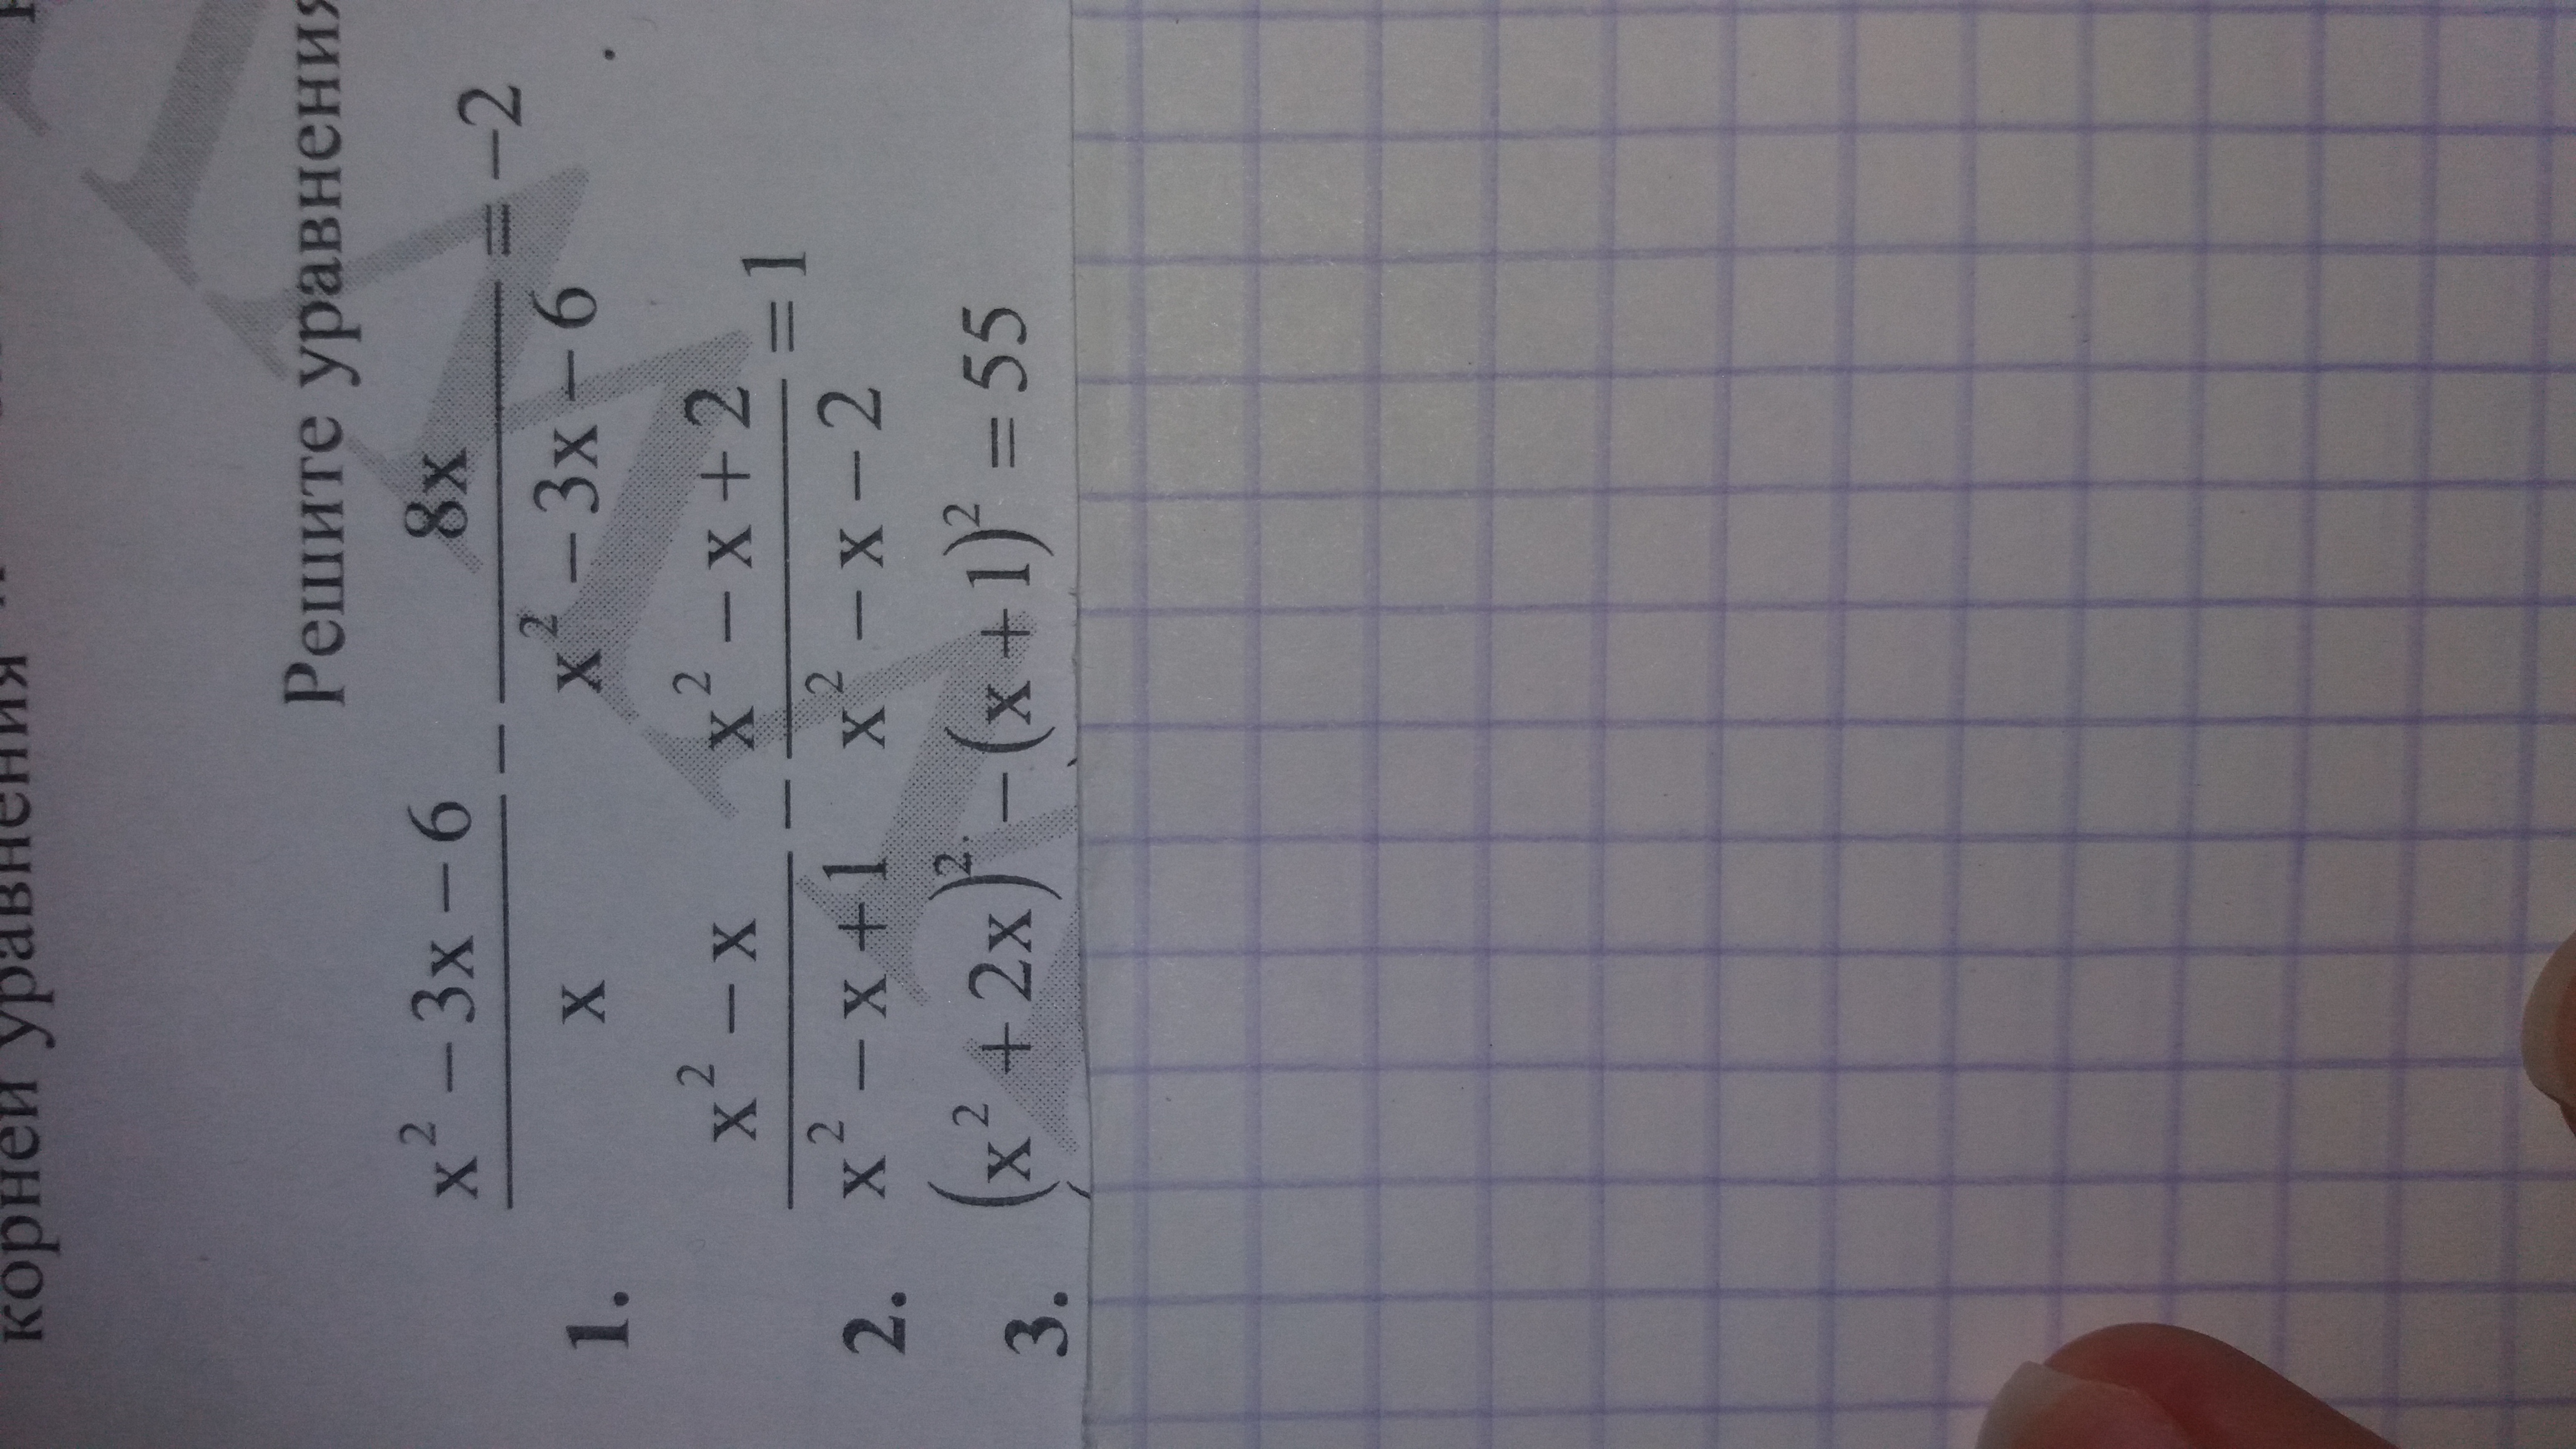 корней уравнения
Решите уравнения
1. (x² − 3x − 6)/x − 8x/(x² − 3x − 6) = −2
2. (x² − x)/(x² − x + 1) − (x² − x + 2)/(x² − x − 2) = 1
3. (x² + 2x)² − (x + 1)² = 55